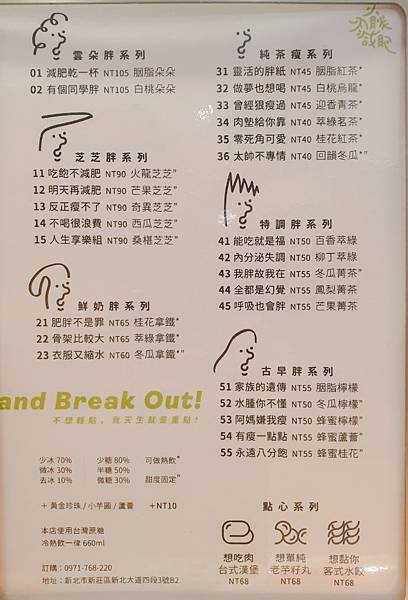 雲朵胖系列
01 減肥乾一杯 NT105 胭脂朵朵
02 有個同學胖 NT105 白桃朵朵
芝芝胖系列
11 吃飽不減肥 NT90 火龍芝芝"
12 明天再減肥 NT90 芒果芝芝"
13 反正瘦不了 NT90 奇異芝芝"
14 不喝很浪費 NT90 西瓜芝芝"
15 人生享樂組 NT90 桑椹芝芝"
鮮奶胖系列
21 肥胖不是罪 NT65 桂花拿鐵*
22 骨架比較大 NT65 萃綠拿鐵*
23 衣服又縮水 NT60 冬瓜拿鐵*"
and Break Out!
不想輕點，我天生就是重點！
少冰 70% 少糖 80% 可做熱飲*
微冰 30% 半糖 50%
去冰 10% 微糖 30% 甜度固定"
+ 黃金珍珠 / 小芋圓 / 蘆薈 +NT10
本店使用台灣原糖
冷熱飲一律 660ml
訂購：0971-768-220
地址：新北市新莊區新北大道四段3號B2
純茶瘦系列
31 靈活的胖紙 NT45 胭脂紅茶*
32 做夢也想喝 NT45 白桃烏龍*
33 曾經狠瘦過 NT45 迎香青茶*
34 肉墊給你靠 NT40 萃綠茗茶*
35 零死角可愛 NT40 桂花紅茶*
36 太帥不專情 NT40 回韻冬瓜*"
特調胖系列
41 能吃就是福 NT50 百香萃綠
42 內分泌失調 NT50 柳丁萃綠
43 我胖故我在 NT55 冬瓜菁茶"
44 全都是幻覺 NT55 鳳梨菁茶
45 呼吸也會胖 NT55 芒果菁茶
古早胖系列
51 家族的遺傳 NT55 胭脂檸檬
52 水腫你不懂 NT50 冬瓜檸檬"
53 阿媽嫌我瘦 NT50 蜂蜜檸檬"
54 有瘦一點點 NT55 蜂蜜蘆薈"
55 永遠八分飽 NT55 蜂蜜桂花"
點心系列
想吃肉 想單純 想黏你
台式漢堡 老芋籽丸 客式水餃
NT68 NT68 NT68